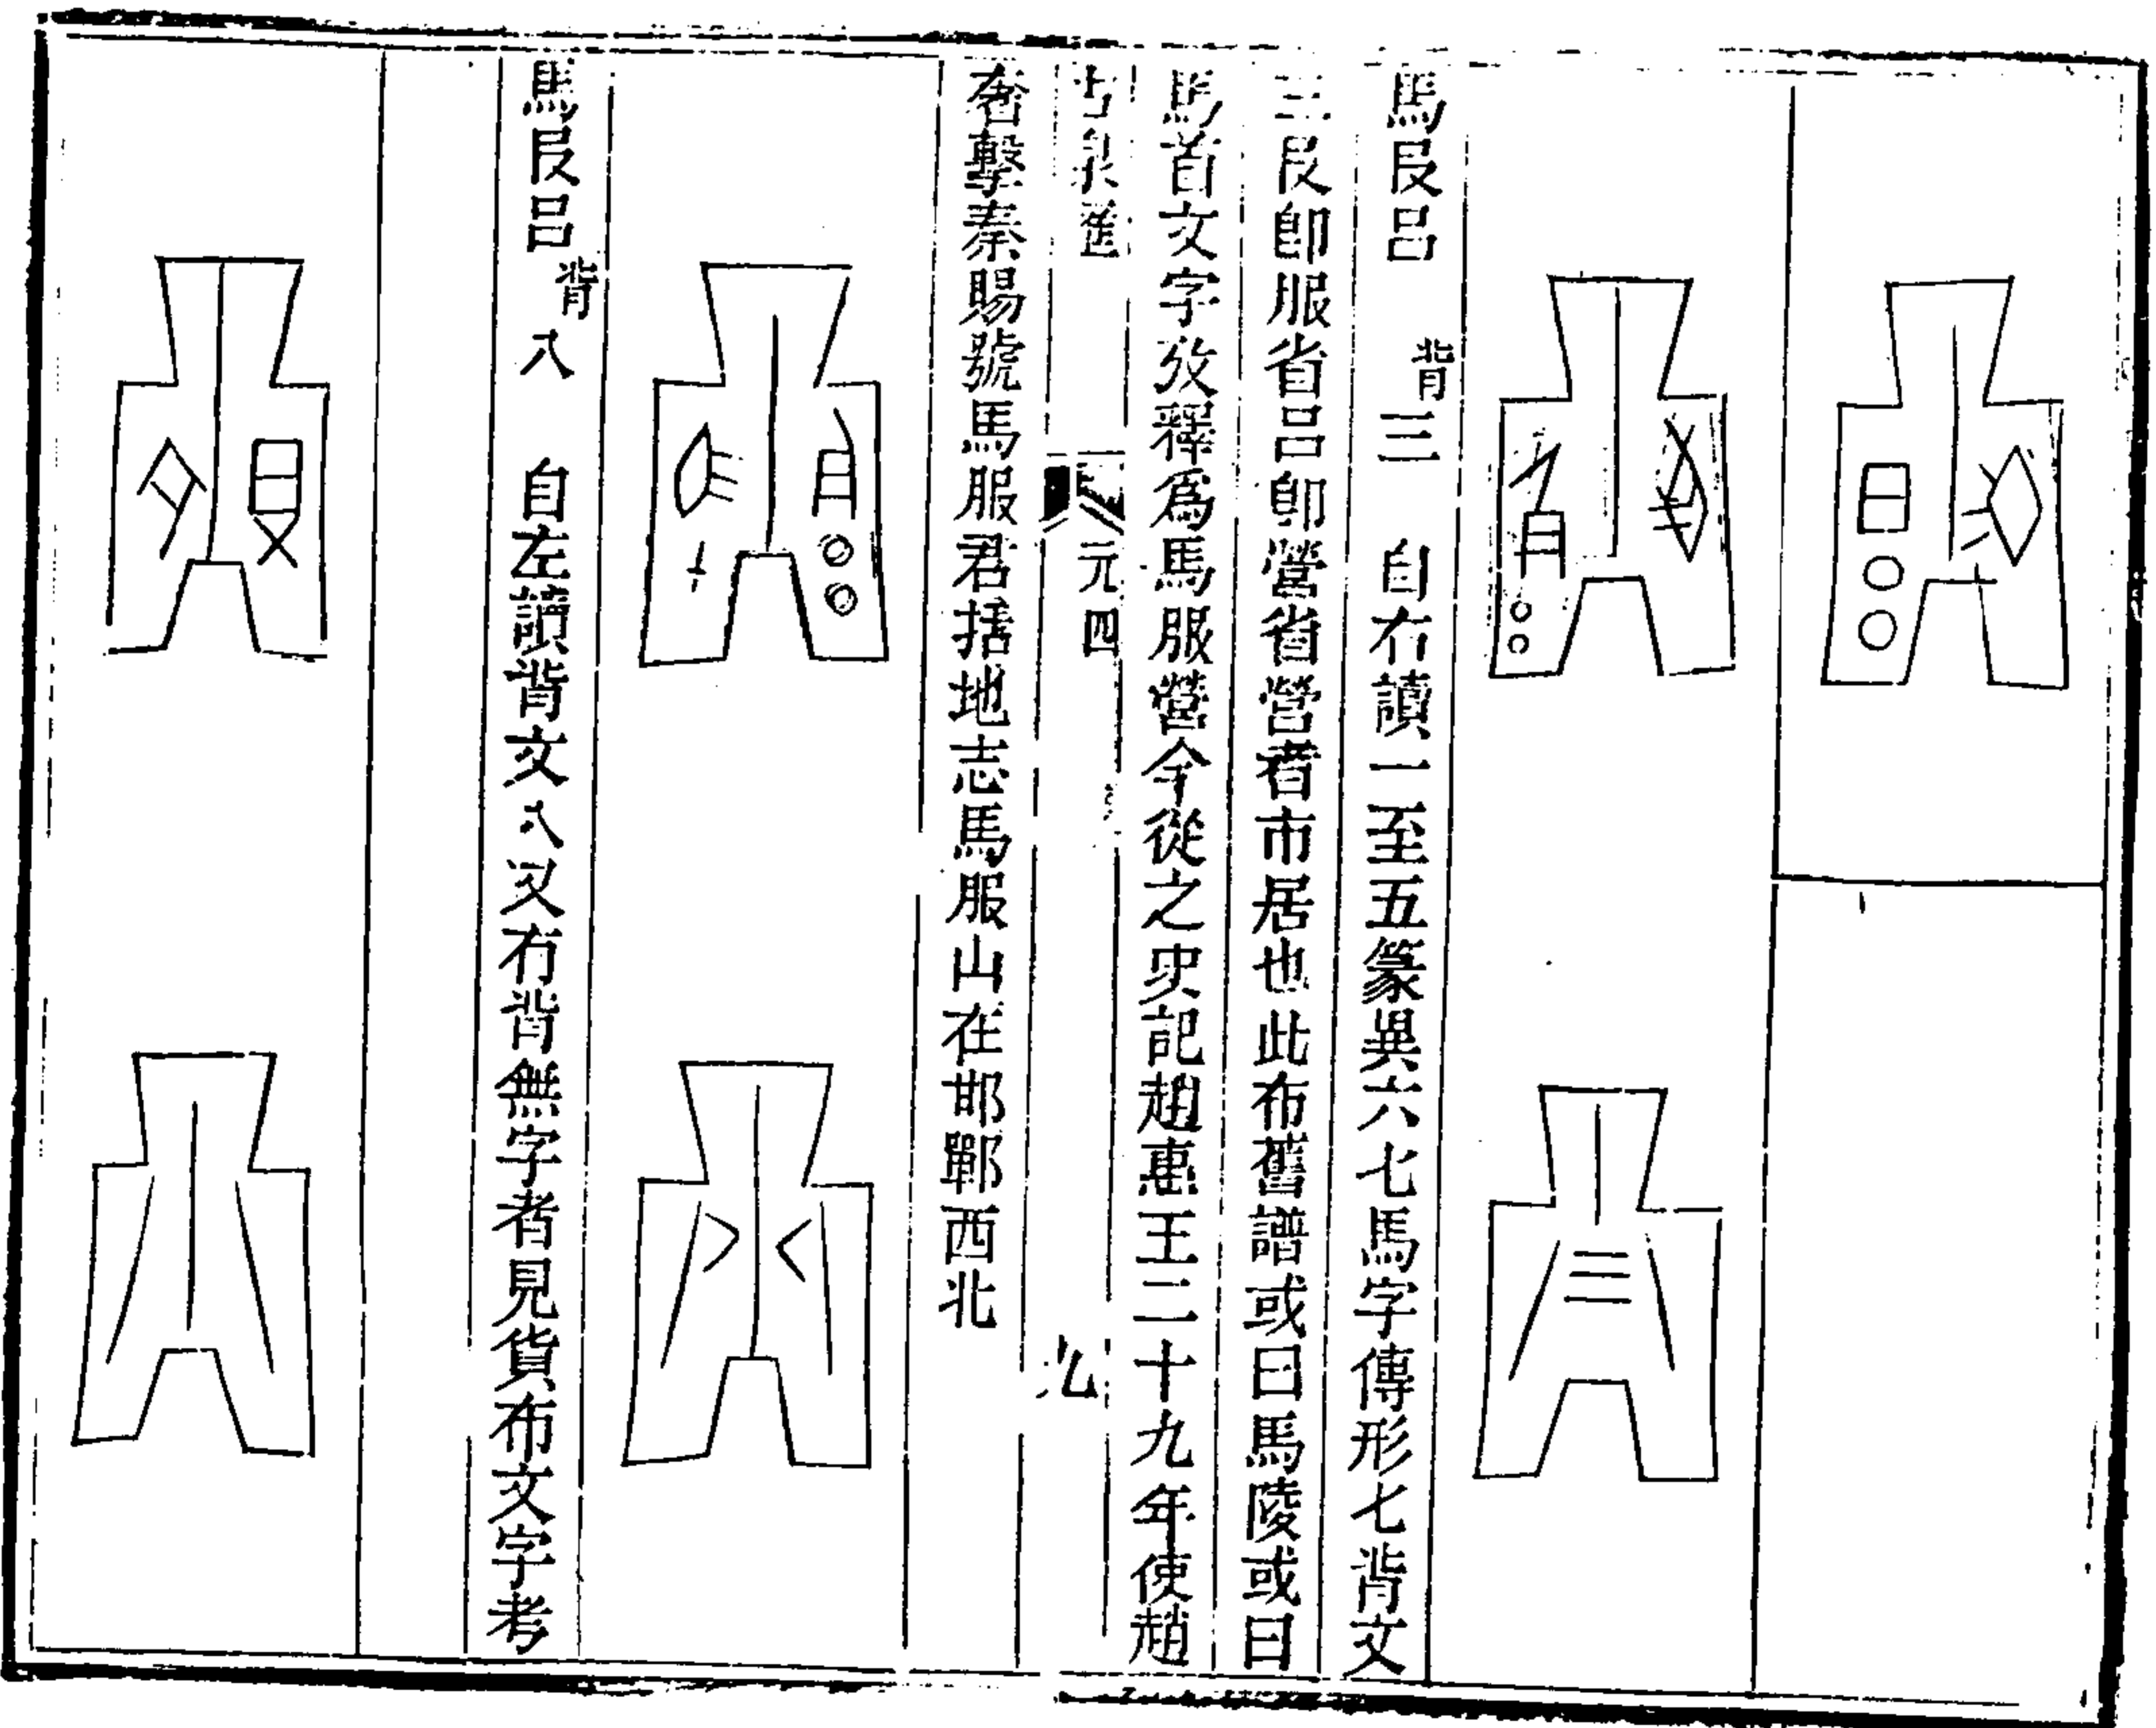 馬𠬝呂 背三 自右讀一至五篆異六七馬字傳形七背文
三𠬝卽服省呂卽營省營者市居也此布舊譜或曰馬陵或曰
馬首文字攷釋爲馬服營今從之史記趙惠王二十九年使趙
古泉滙 元四 九
奢擊秦賜號馬服君括地志馬服山在邯鄲西北
馬𠬝呂 背八 自左讀背文八又有背無字者見貨布文字考